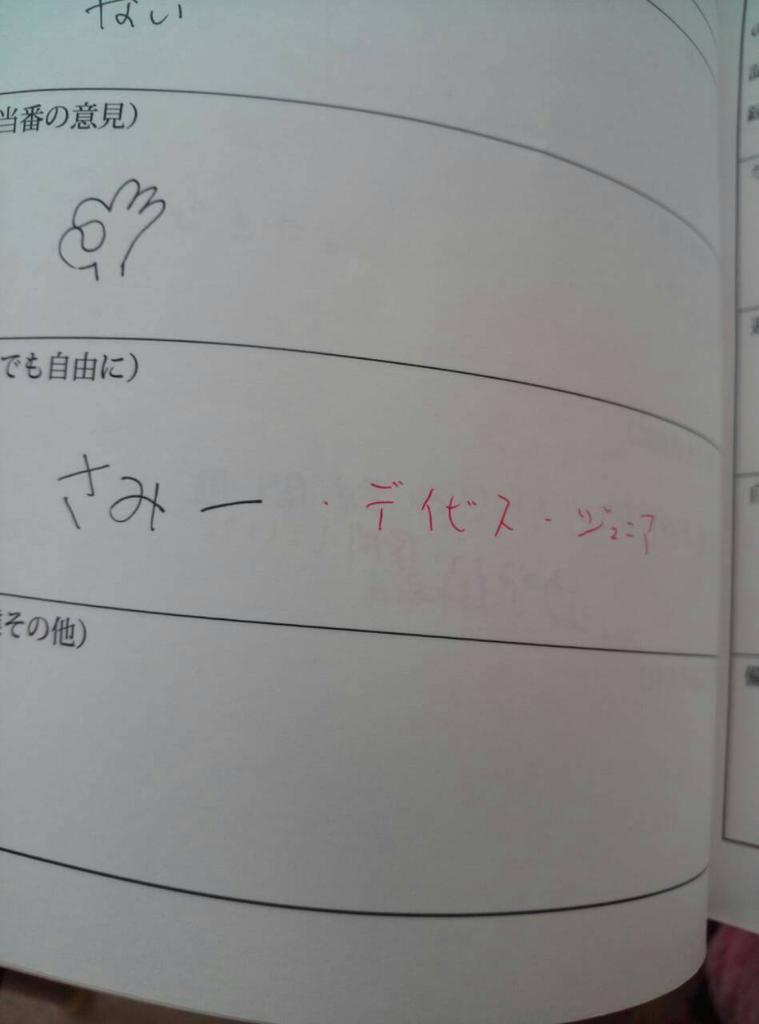 ない
当番の意見)
でも自由に)
さみー・デイビス・ジュニア
その他)